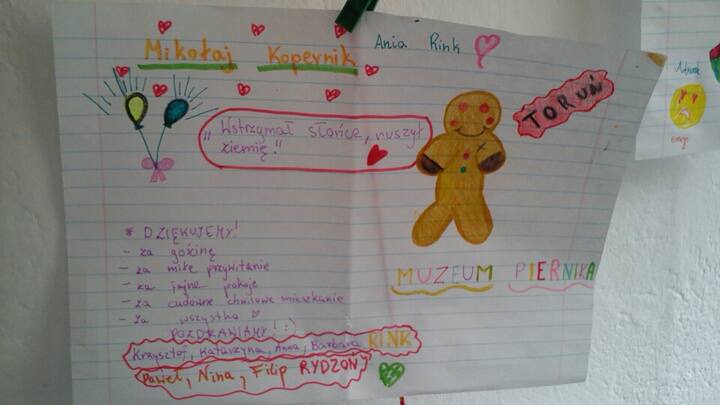 Mikołaj Kopernik Ania Rink
"Wstrzymał słońce, ruszył
ziemię!"
TORUŃ
MUZEUM PIERNIKA
* DZIĘKUJEMY!
- za gościnę
- za miłe przywitanie
- za fajne pokoje
- za cudowne chwilowe mieszkanie
- za wszystko
POZDRAWIAMY! :)
Krzysztof, Katarzyna, Anna, Barbara RINK
Paweł, Nina, Filip RYDZOŃ